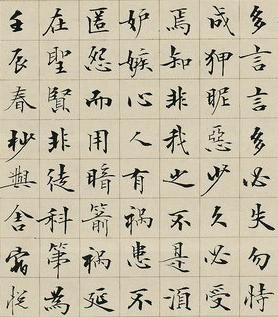 多言言多必失勿恃
成狎昵惡少久必受
焉知非我之不是須
妒嫉心人有禍患不
匿怨而用暗箭禍延
在聖賢非徒科第為
壬辰春杪與舍悅